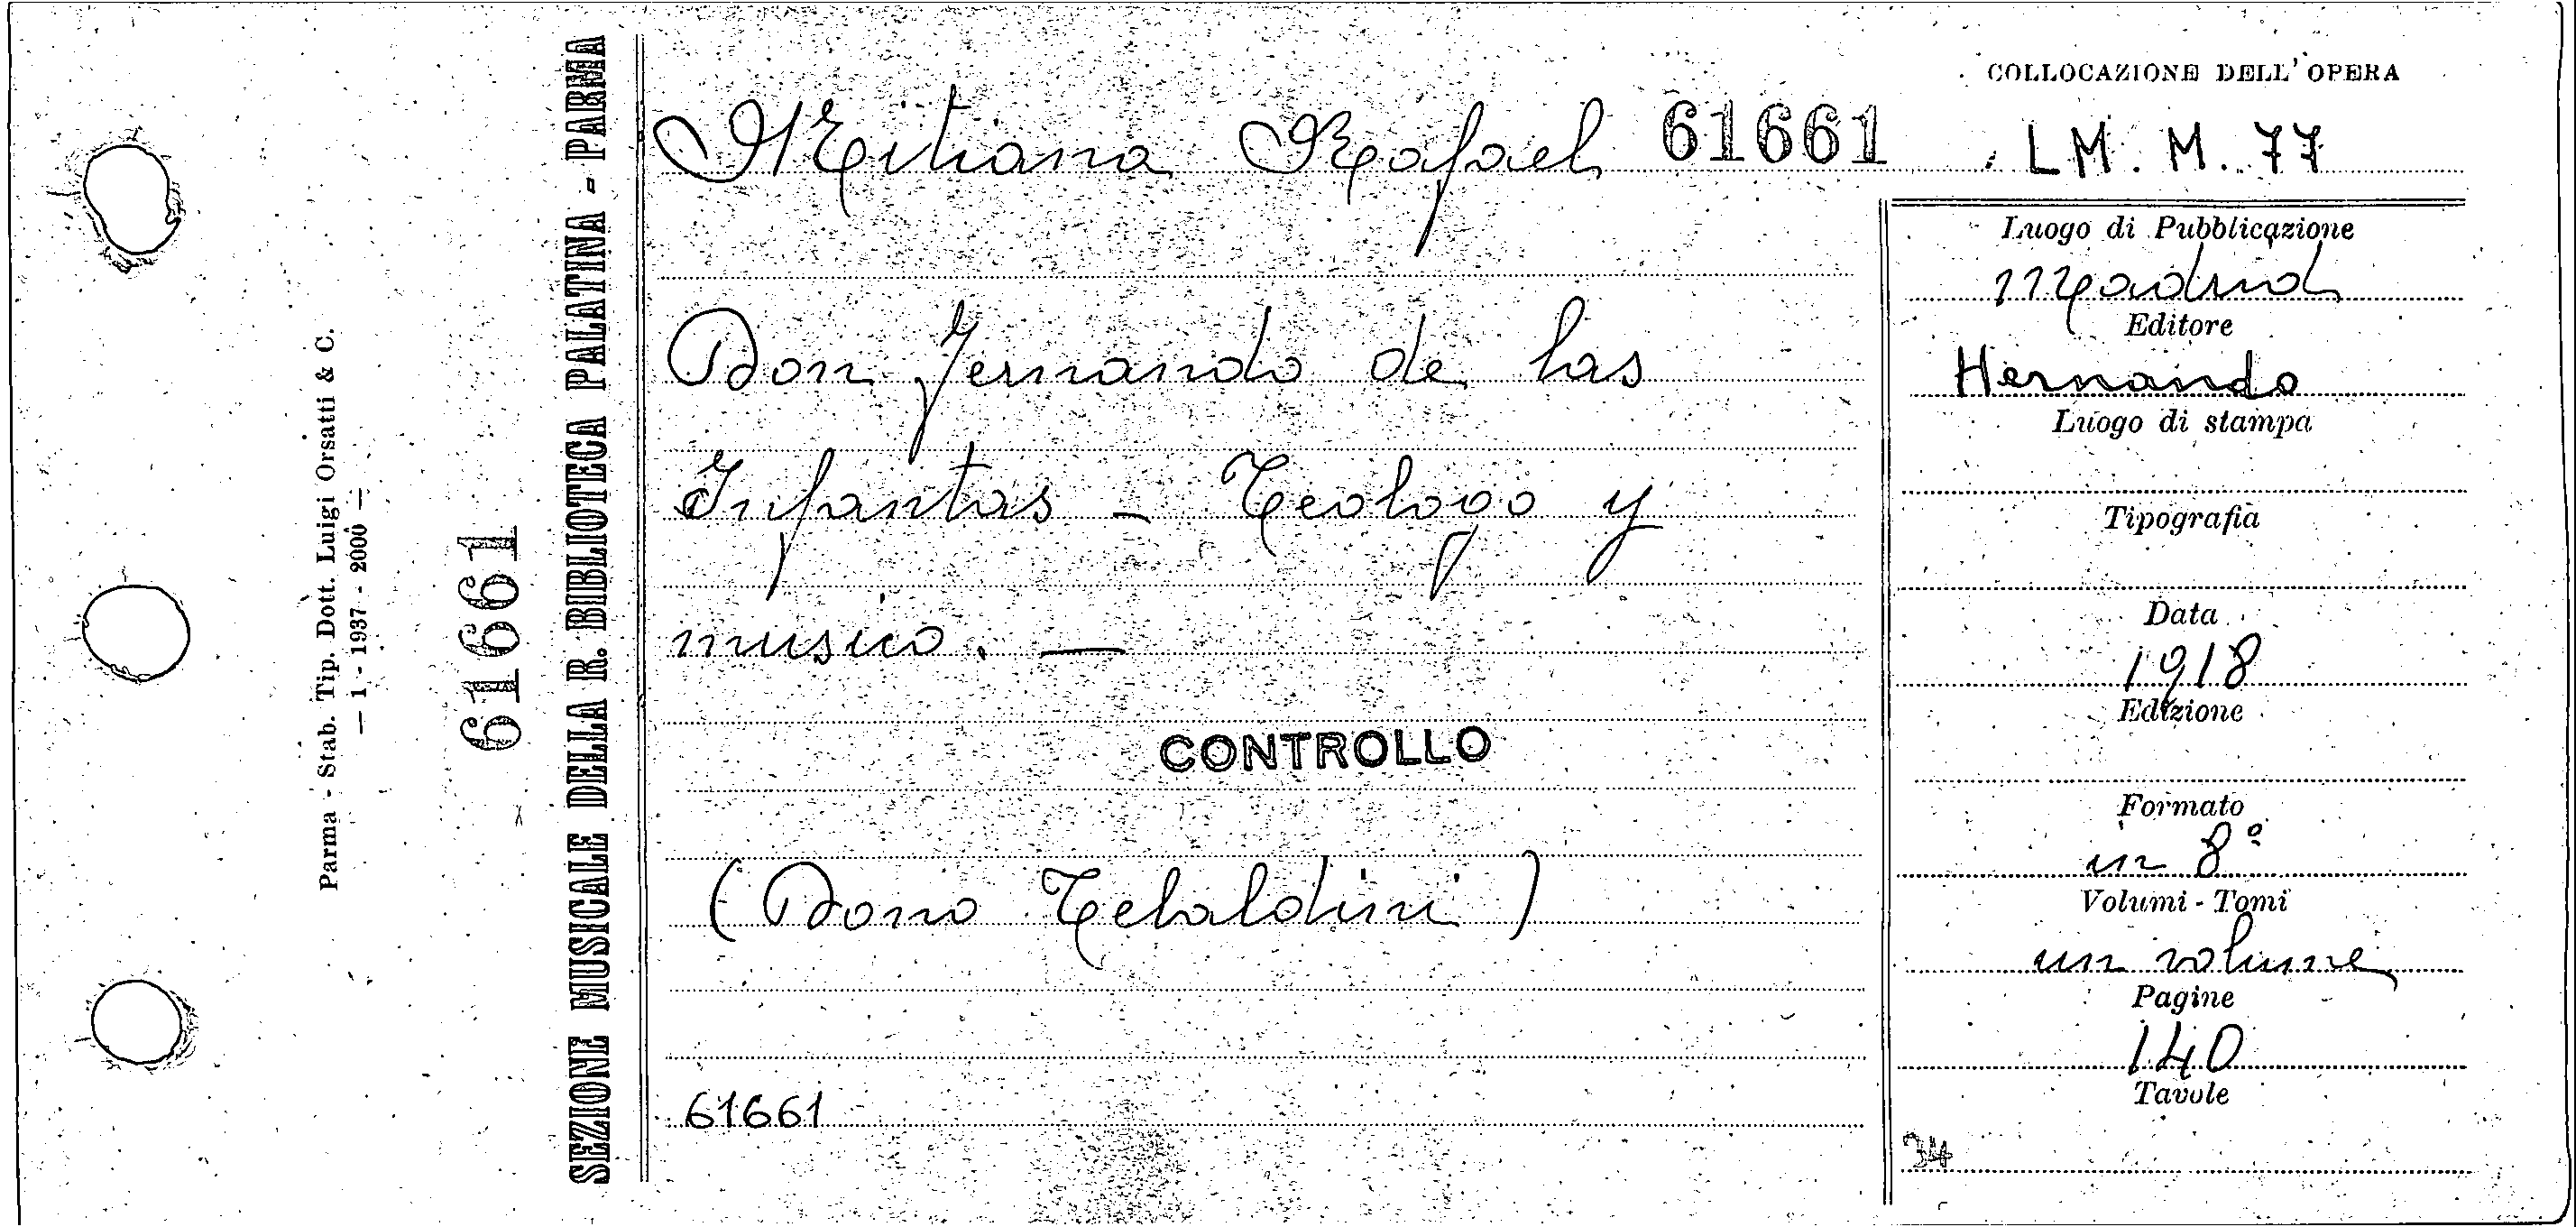 COLLOCAZIONE DELL'OPERA
Mitiana Rafael 61661 LM. M. 77
Don Fernando de las
Infantas - Teologo y
musico. —
CONTROLLO
(Dono Tebaldini)
61661
Luogo di Pubblicazione
Madrid
Editore
Hernando
Luogo di stampa
Tipografia
Data
1918
Edizione
Formato
in 8º
Volumi - Tomi
un volume
Pagine
140
Tavole
34
SEZIONE MUSICALE DELLA R. BIBLIOTECA PALATINA - PARMA
61661
Parma - Stab. Tip. Dott. Luigi Orsati & C.
— 1 - 1937 - 2000 —